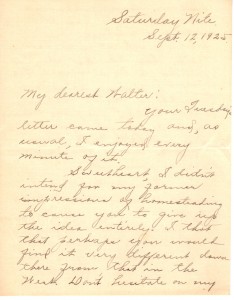 Saturday Nite
Sept. 12, 1925
My dearest Walter:
Your Tuesday
letter came today and, as
usual, I enjoyed every
minute of it.
Sweetheart, I didn't
intend for my former
impressions of homesteading
to cause you to give up
the idea entirely. I that
that perhaps you would
find it very different down
there from that in the
West. Don't hesitate on my